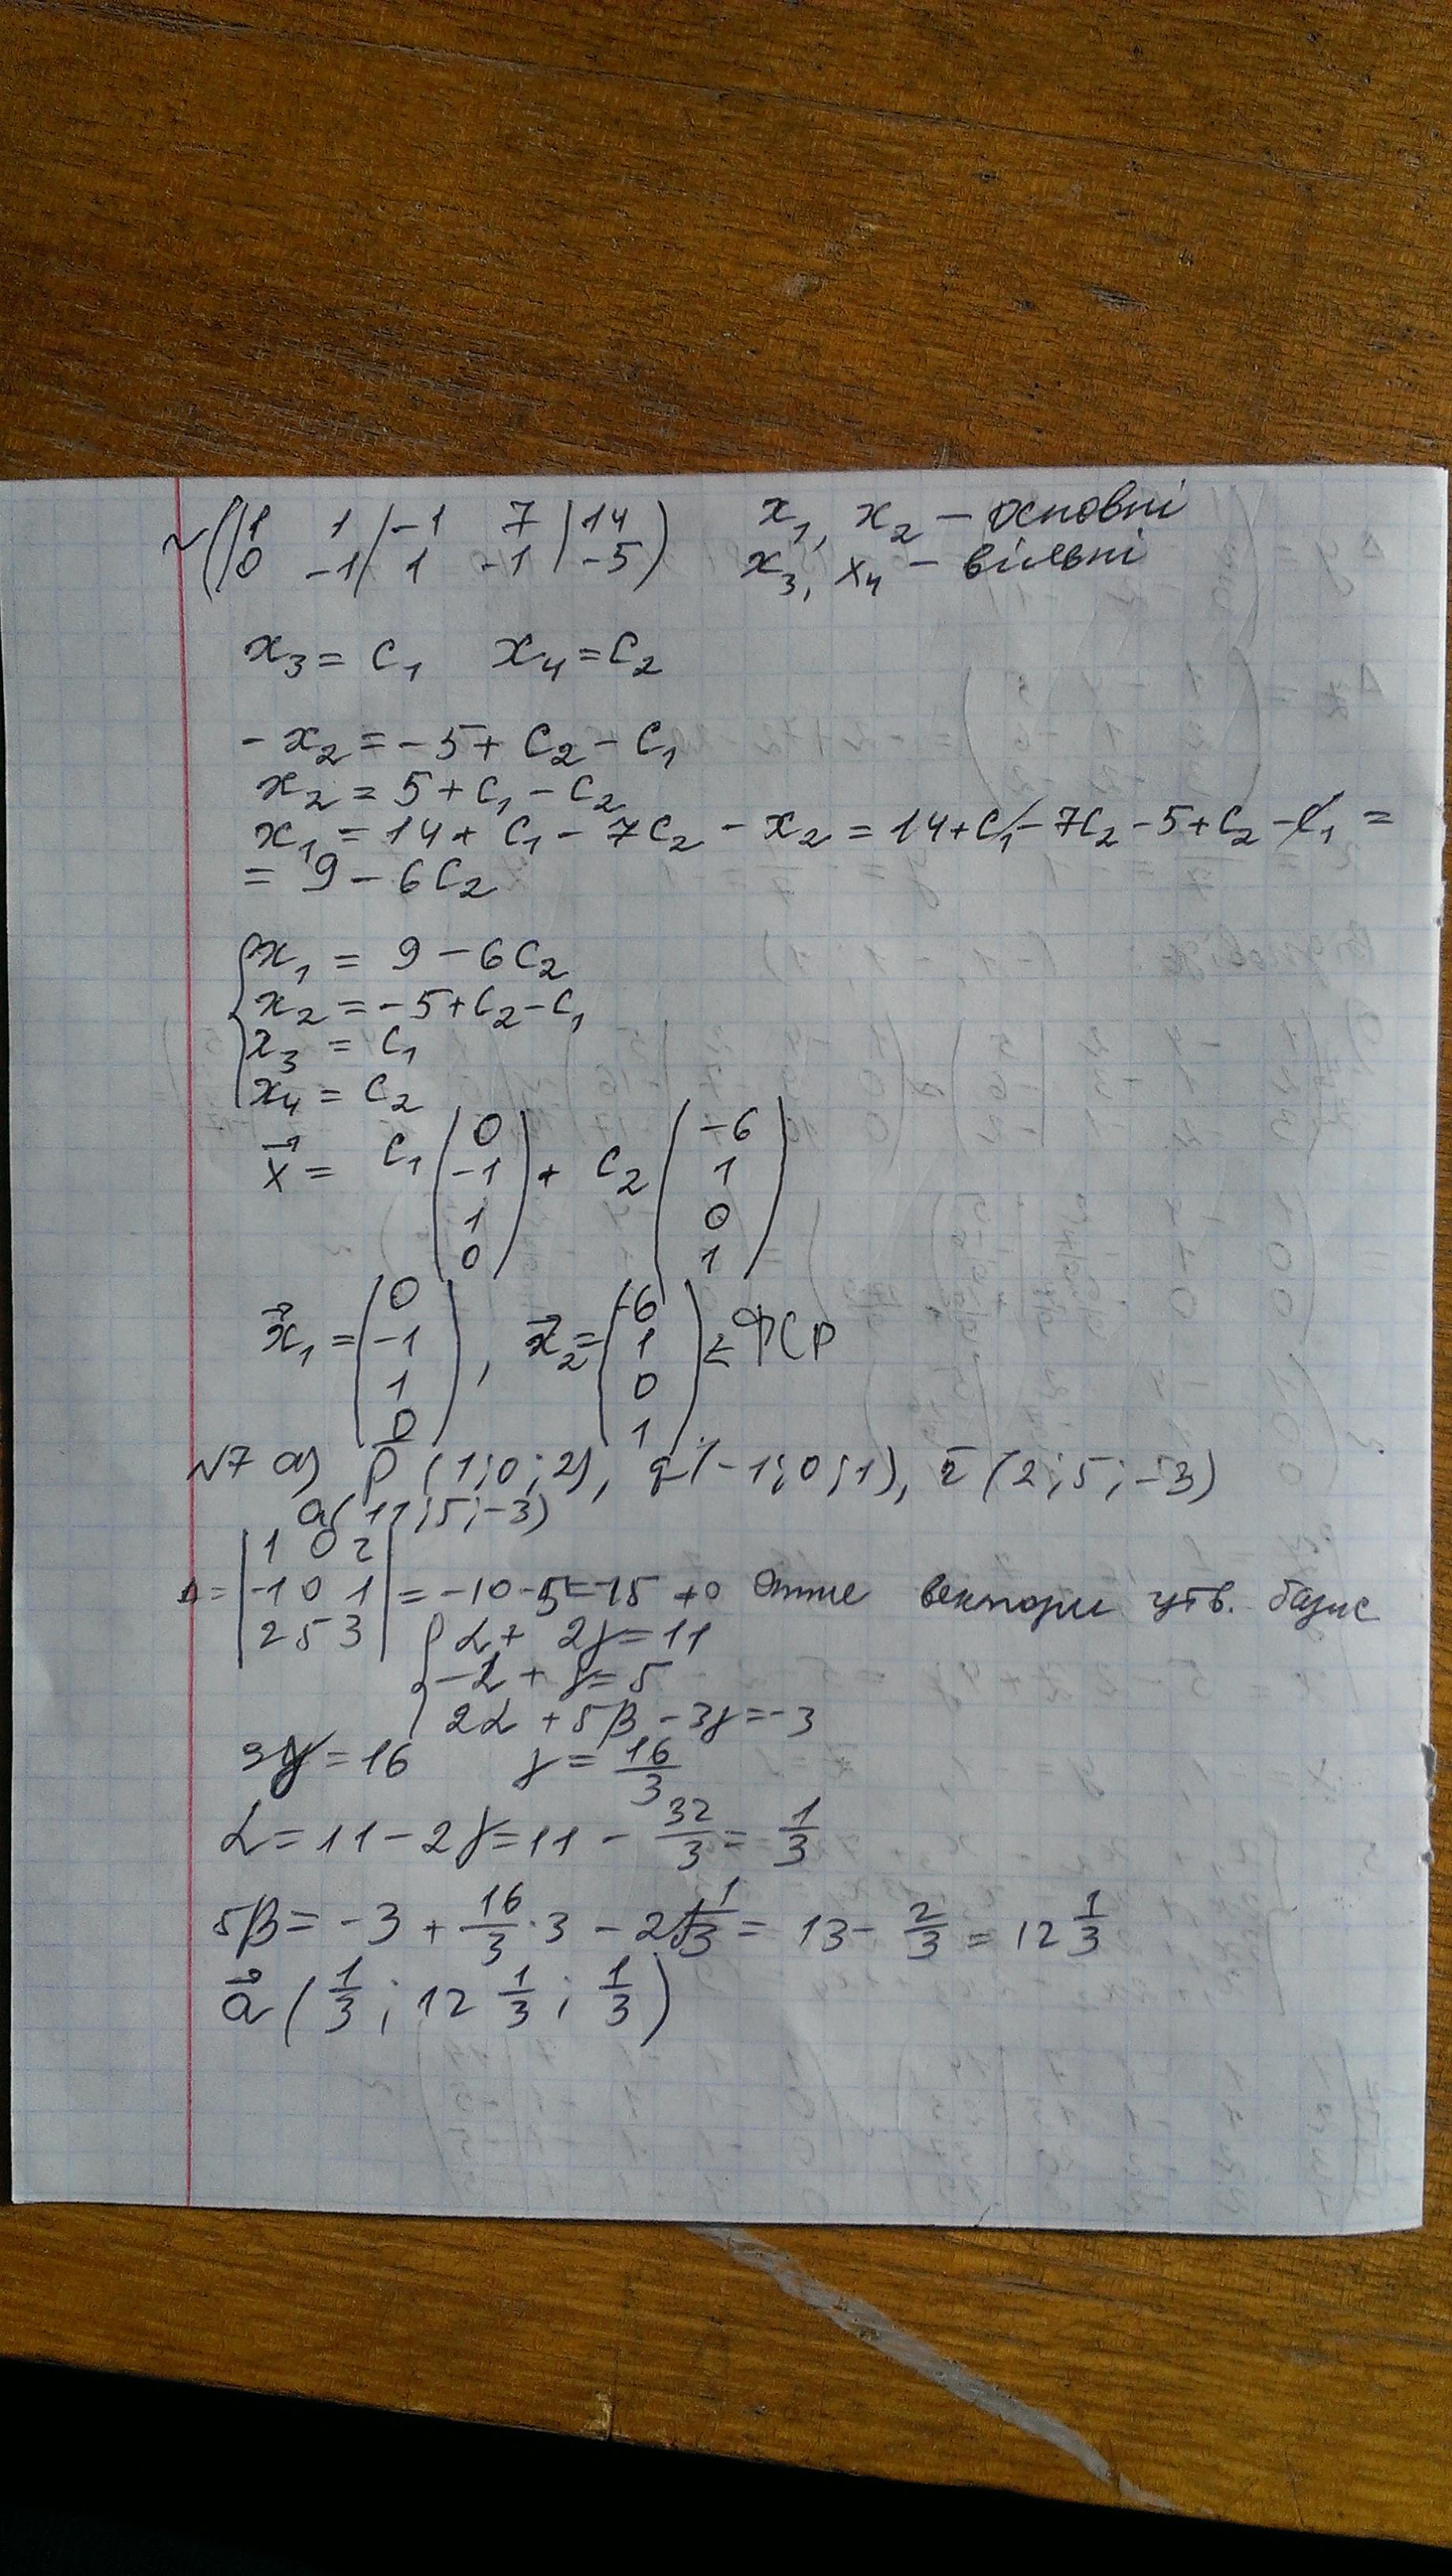 ~ ( 1 1 | -1 7 | 14 ) x₁, x₂ - основні
( 0 -1 | 1 -1 | -5 ) x₃, x₄ - вільні
x₃ = C₁ x₄ = C₂
- x₂ = -5 + C₂ - C₁
x₂ = 5 + C₁ - C₂
x₁ = 14 + C₁ - 7C₂ - x₂ = 14 + C₁ - 7C₂ - 5 + C₂ - C₁ =
= 9 - 6C₂
x₁ = 9 - 6C₂
x₂ = -5 + C₂ - C₁
x₃ = C₁
x₄ = C₂
x⃗ = C₁ (0 -1 1 0) + C₂ (-6 1 0 1)
x⃗₁ = (0 -1 1 0), x⃗₂ = (-6 1 0 1) ФСР
№7 а) p̄ (1; 0; 2), q (-1; 0; 1), r̄ (2; 5; -3)
a (11; 5; -3)
| 1 0 2 |
Δ = | -1 0 1 | = -10 - 5 = -15 ≠ 0 Отже вектори утв. базис
| 2 5 3 |
α + 2γ = 11
-α + γ = 5
2α + 5β - 3γ = -3
3γ = 16 γ = 16/3
α = 11 - 2γ = 11 - 32/3 = 1/3
5β = -3 + 16/3 · 3 - 2 1/3 = 13 - 2/3 = 12 1/3
a⃗ ( 1/3 ; 12 1/3 ; 1/3 )